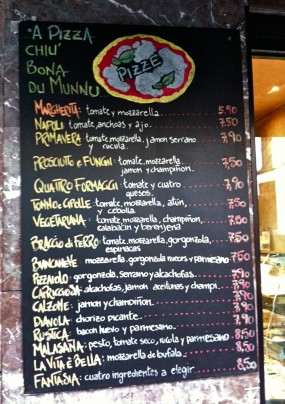 A PIZZA
CHIU'
BONA
DU MUNNU
PIZZE
MARGHERITA: tomate y mozzarella 5,90
NAPOLI: tomate, anchoas y ajo. 7,50
PRIMAVERA: tomate, mozzarella, jamon serrano 7,90
y rucula.
PROSCIUTTO E FUNGHI: tomate, mozzarella, 7,50
jamon y champiñon.
QUATTRO FORMAGGI: tomate y cuatro 7,90
quesos.
TONNO E CIPOLLE: tomate, mozzarella, atún, 7,50
y cebolla
VEGETARIANA: tomate, mozzarella, champiñon, 7,00
calabacin y berenjena
BRACCIO DI FERRO: tomate, mozzarella, gorgonzola, 7,50
espinacas
BIANCANEVE: mozzarella, gorgonzola nueces y parmesano 7,50
PIZZAIOLO: gorgonzola, serrano y alcachofas. 7,90
CAPRICCIOSA: alcachofas, jamon aceitunas y champi. 7,90
CALZONE: jamon y champiñon. 7,90
DIAVOLA: chorizo picante. 7,90
RUSTICA: bacon huevo y parmesano. 7,90
MALASAÑA: pesto, tomate seco, rucula y parmesano 8,50
LA VITA È BELLA: mozzarella de bufala. 8,50
FANTASIA: cuatro ingredientes a elegir. 8,50